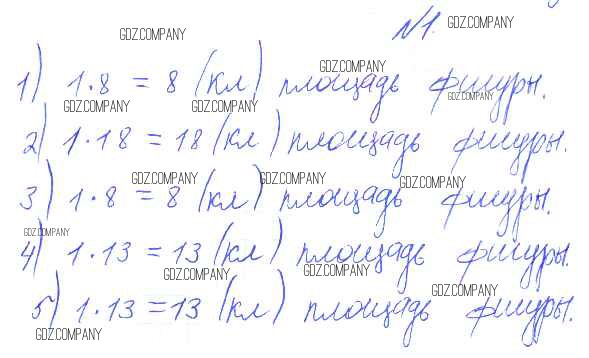 №1. GDZ.COMPANY
GDZ.COMPANY
GDZ.COMPANY
1) 1·8 = 8 (кл) площадь фигуры.
GDZ.COMPANY
GDZ.COMPANY GDZ.COMPANY
2) 1·18 = 18 (кл) площадь фигуры.
GDZ.COMPANY GDZ.COMPANY GDZ.COMPANY
3) 1·8 = 8 (кл) площадь фигуры.
GDZ.COMPANY
4) 1·13 = 13 (кл) площадь фигуры.
GDZ.COMPANY GDZ.COMPANY
GDZ.COMPANY
5) 1·13 = 13 (кл) площадь фигуры.
GDZ.COMPANY